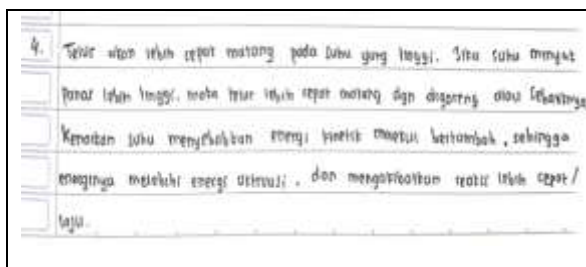 4. Telur akan lebih cepat matang pada suhu yang tinggi. Jika suhu minyak
panas lebih tinggi, maka telur lebih cepat matang dgn digoreng atau sebaliknya
Kenaikan suhu menyebabkan energi kinetik molekul bertambah, sehingga
energinya melebihi energi aktivasi, dan mengakibatkan reaksi lebih cepat/
laju.